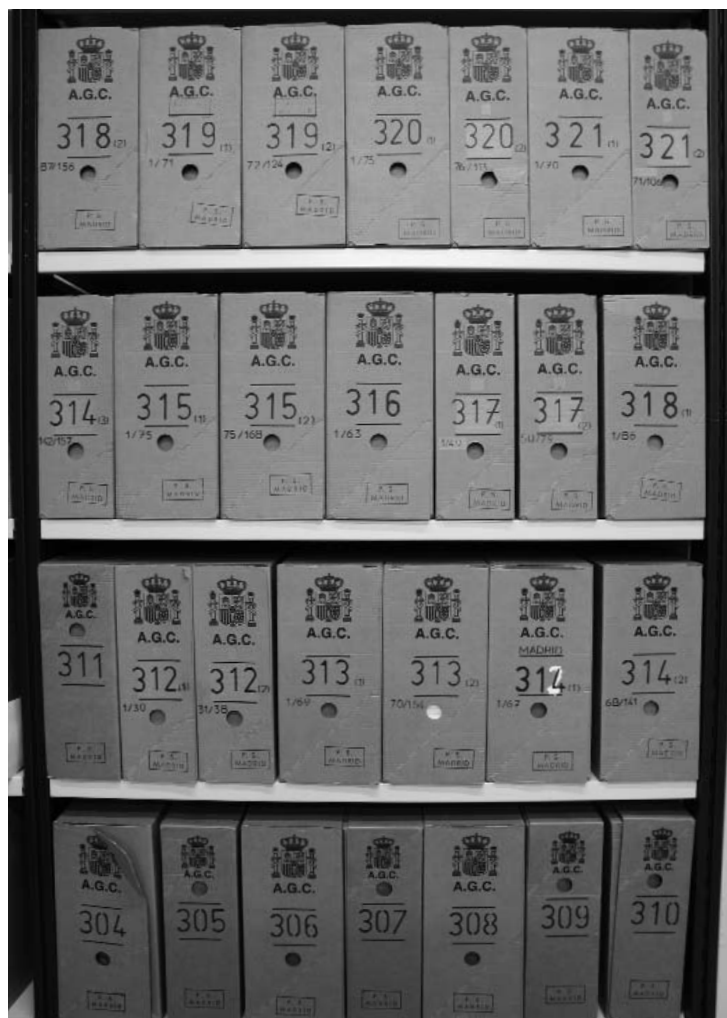 A.G.C.
318 (2)
87/156
P. S.
MADRID
A.G.C.
319 (1)
1/71
P. S.
MADRID
A.G.C.
319 (2)
72/124
P. S.
MADRID
A.G.C.
320 (1)
1/75
P. S.
MADRID
A.G.C.
320 (2)
P. S.
MADRID
A.G.C.
321 (1)
1/70
P. S.
MADRID
A.G.C.
321 (2)
P. S.
MADRID
A.G.C.
314 (3)
142/157
P. S.
MADRID
A.G.C.
315 (1)
1/75
P. S.
MADRID
A.G.C.
315 (2)
75/168
P. S.
MADRID
A.G.C.
316
1/63
P. S.
MADRID
A.G.C.
317 (1)
1/49
P. S.
MADRID
A.G.C.
317 (2)
P. S.
MADRID
A.G.C.
318 (1)
1/86
P. S.
MADRID
A.G.C.
311
P. S.
MADRID
A.G.C.
312 (1)
1/30
P. S.
MADRID
A.G.C.
312 (2)
31/38
P. S.
MADRID
A.G.C.
313 (1)
1/69
P. S.
MADRID
A.G.C.
313 (2)
P. S.
MADRID
A.G.C.
MADRID
314 (1)
1/67
P. S.
MADRID
A.G.C.
314 (2)
68/141
P. S.
MADRID
A.G.C.
304
P. S.
MADRID
A.G.C.
305
P. S.
MADRID
A.G.C.
306
P. S.
MADRID
A.G.C.
307
P. S.
MADRID
A.G.C.
308
P. S.
MADRID
A.G.C.
309
P. S.
MADRID
A.G.C.
310
P. S.
MADRID